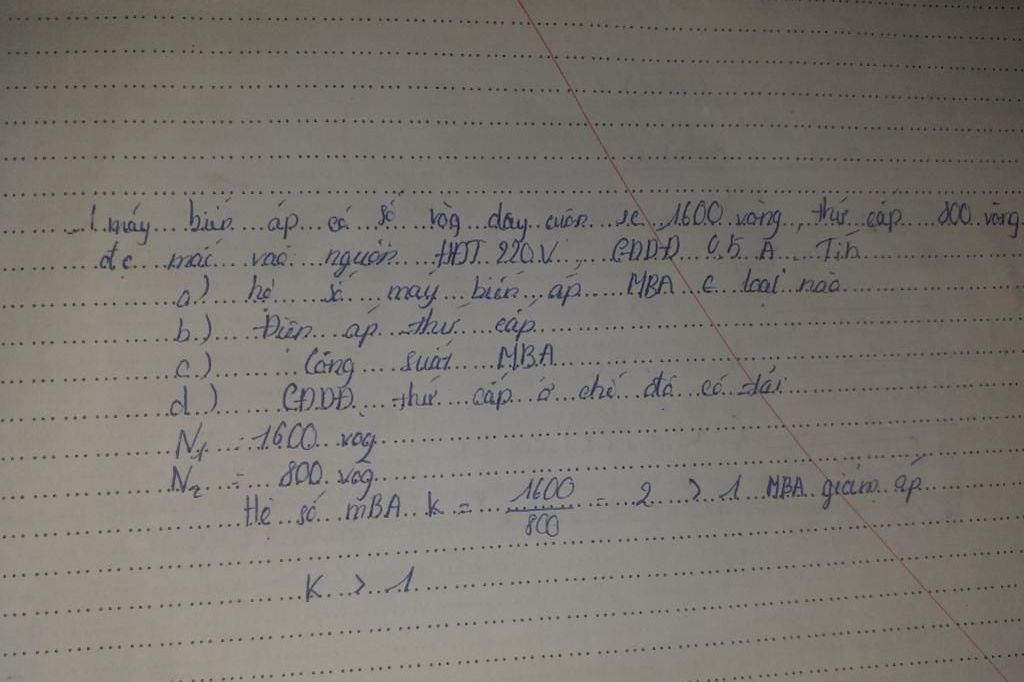 1 máy biến áp có số vòg dây cuộn sc 1600 vòng, thứ cấp 800 vòng
đc mắc vào nguồn HĐT 220V, CĐDĐ 0,5 A Tíh
a) hệ số máy biến áp MBA € loại nào
b) Điện áp thứ cấp
c) Công suất MBA
d) CĐDĐ thứ cấp ở chế độ có tải
N₁ = 1600 vòg
N₂ = 800 vòg
Hệ số MBA K = 1600/800 = 2 > 1 MBA giảm áp
K > 1